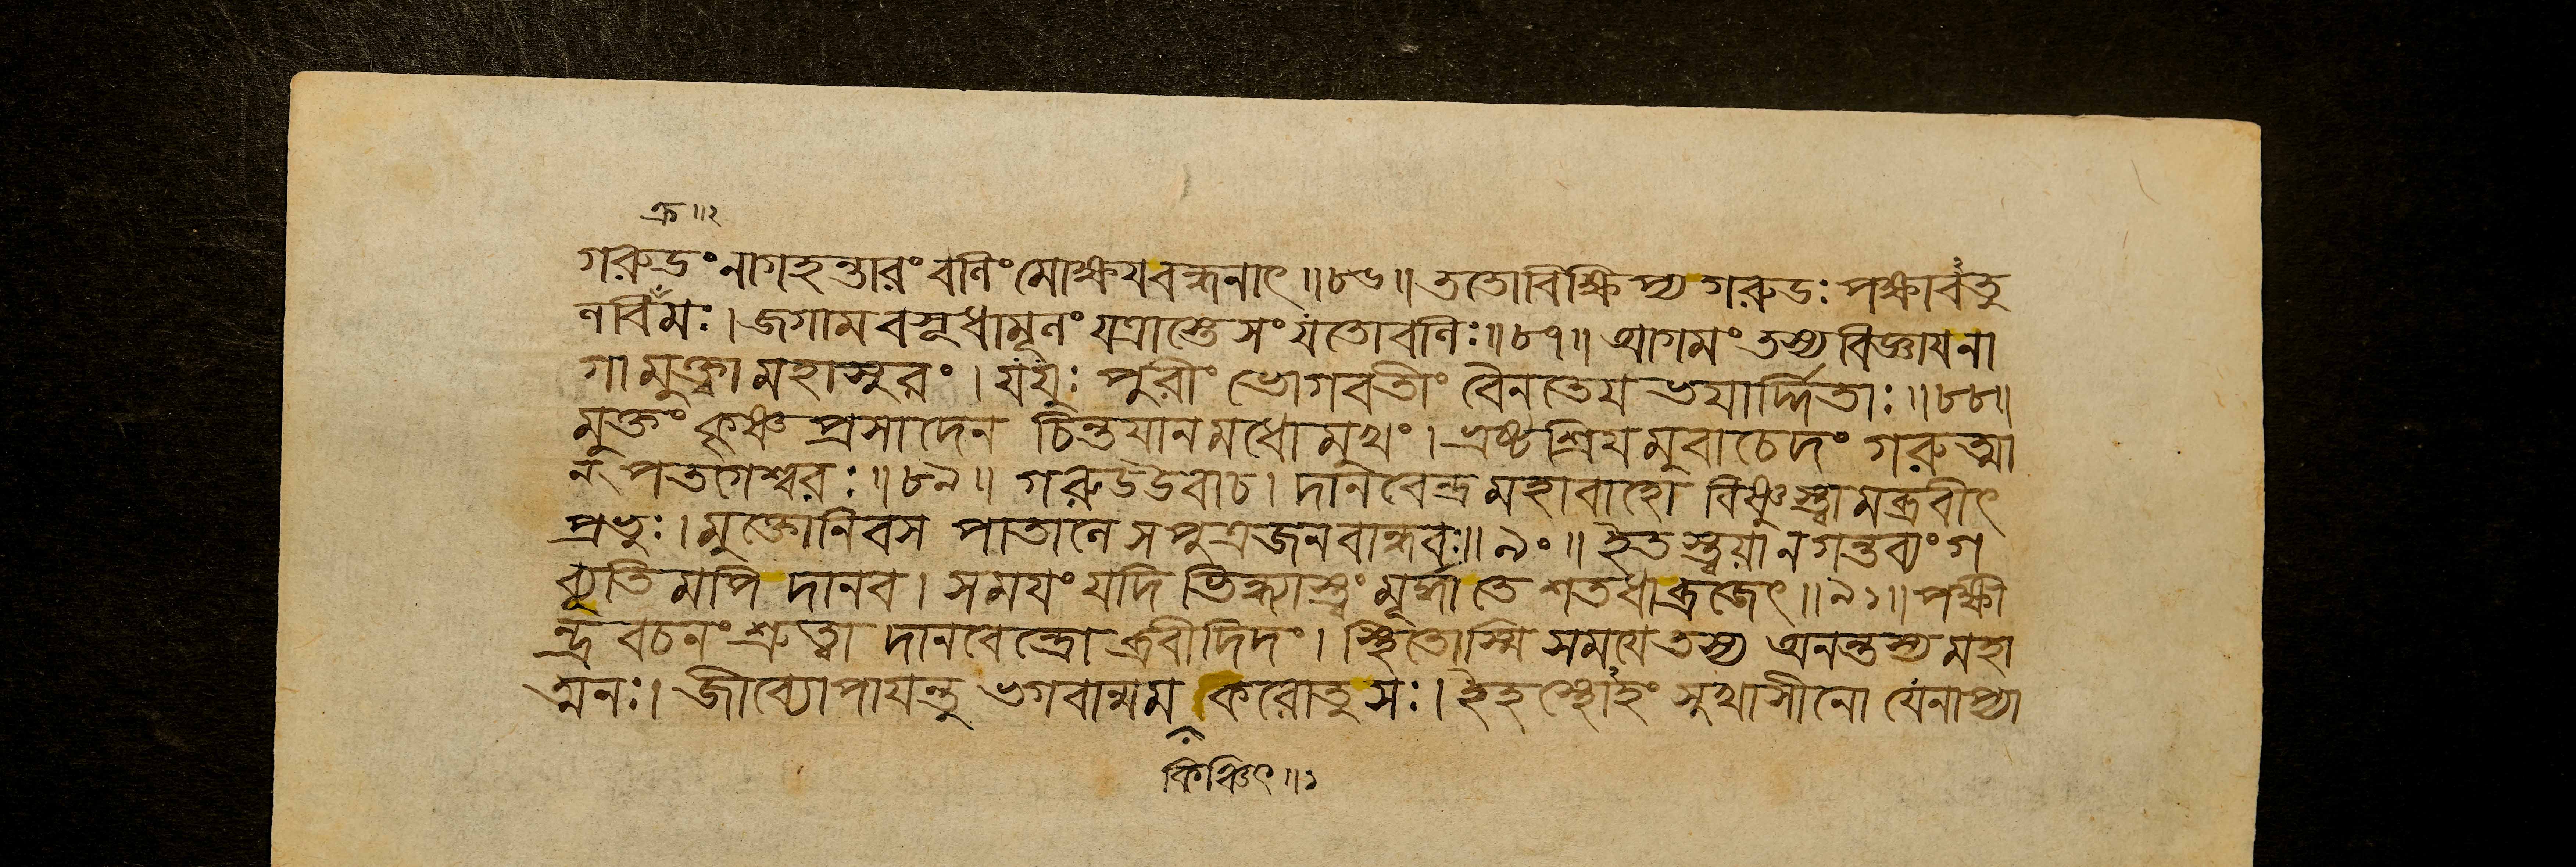 ক্র॥২
গরুডং নাগহন্তারং বলিং মোক্ষয বন্ধনাৎ॥৮৬॥ ততো বিক্ষিপ্য গরুডঃ পক্ষাবতু
লবিক্রমঃ। জগাম বসুধামূলং যত্রাস্তে সংযতো বলিঃ॥৮৭॥ আগমং তস্য বিজ্ঞায না
গা মুক্ত্বা মহাসুরং। যযুঃ পুরীং ভোগবতীং বৈনতেয ভযার্দ্দিতাঃ॥৮৮॥
মুক্তং কৃষ্ণ প্রসাদেন চিন্তযানমধোমুখং। ভ্রষ্টশ্রিযমুবাচেদং গরুত্মা
ন্ পতগেশ্বরঃ॥৮৯॥ গরুড উবাচ। দানবেন্দ্র মহাবাহো বিষ্ণুস্ত্বামব্রবীৎ
প্রভুঃ। মুক্তো নিবস পাতালে সপুত্রজনবান্ধবঃ॥৯০॥ ইতস্ত্বযা ন গন্তব্যং গ
ব্যূতিমপি দানব। সমযং যদি ভিন্দ্যাস্ত্বং মূর্দ্ধা তে শতধা ব্রজেৎ॥৯১॥ পক্ষী
ন্দ্র বচনং শ্রুত্বা দানবেন্দ্রো ব্রবীদিদং। স্থিতোস্মি সমযে তস্য অনন্তস্য মহা
ত্মনঃ। জীব্যোপাযন্তু ভগবান্মম করোতু সঃ। ইহস্থোহং সুখাসীনো যেনাপ্যা
কিঞ্চিৎ॥১